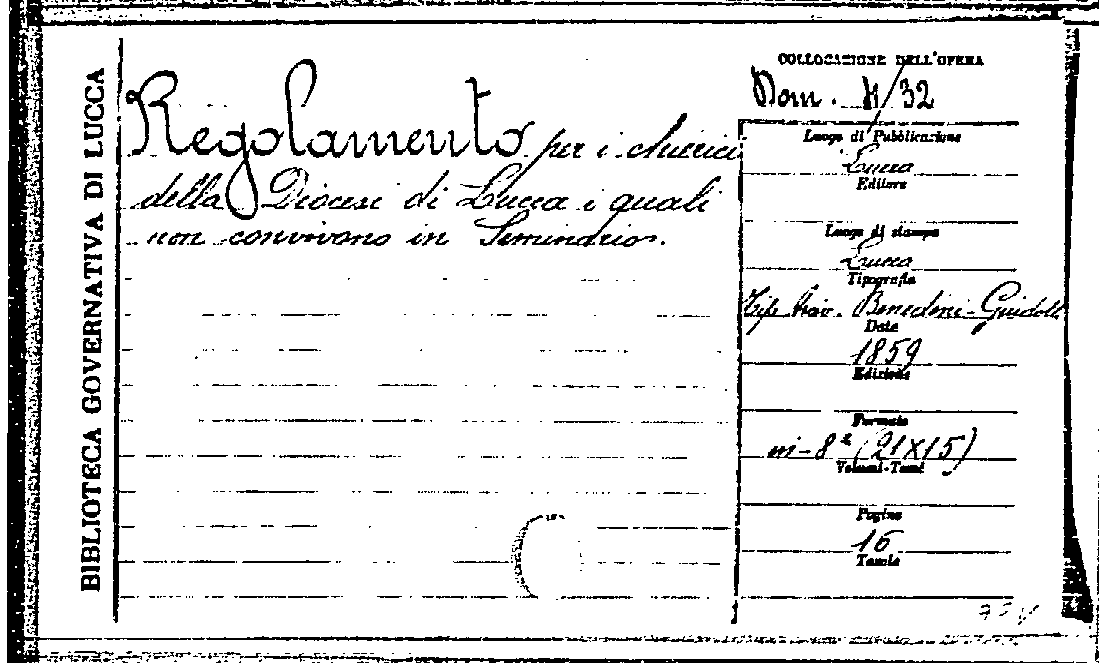 BIBLIOTECA GOVERNATIVA DI LUCCA
Regolamento per i chierici
della Diocesi di Lucca i quali
non convivono in Seminario.
COLLOCAZIONE DELL'OPERA
Dom. /32
Luogo di Pubblicazione
Lucca
Editore
Luogo di stampa
Lucca
Tipografia
Tip. Benedini-Guidotti
Data
1859
Edizione
Formato
in-8° (21x15)
Volumi-Tomi
Pagine
16
Tavole